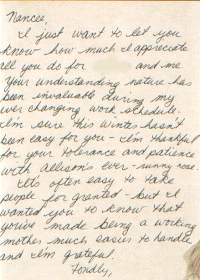 Nancee,
I just want to let you
know how much I appreciate
all you do for and me.
Your understanding nature has
been invaluable during my
ever changing work schedule.
I'm sure this winter hasn't
been easy for you - I'm thankful
for your tolerance and patience
with Allison's ever-runny nose
Its often easy to take
people for granted - but I
wanted you to know that
you've made being a working
mother much easier to handle
and I'm grateful.
Fondly,